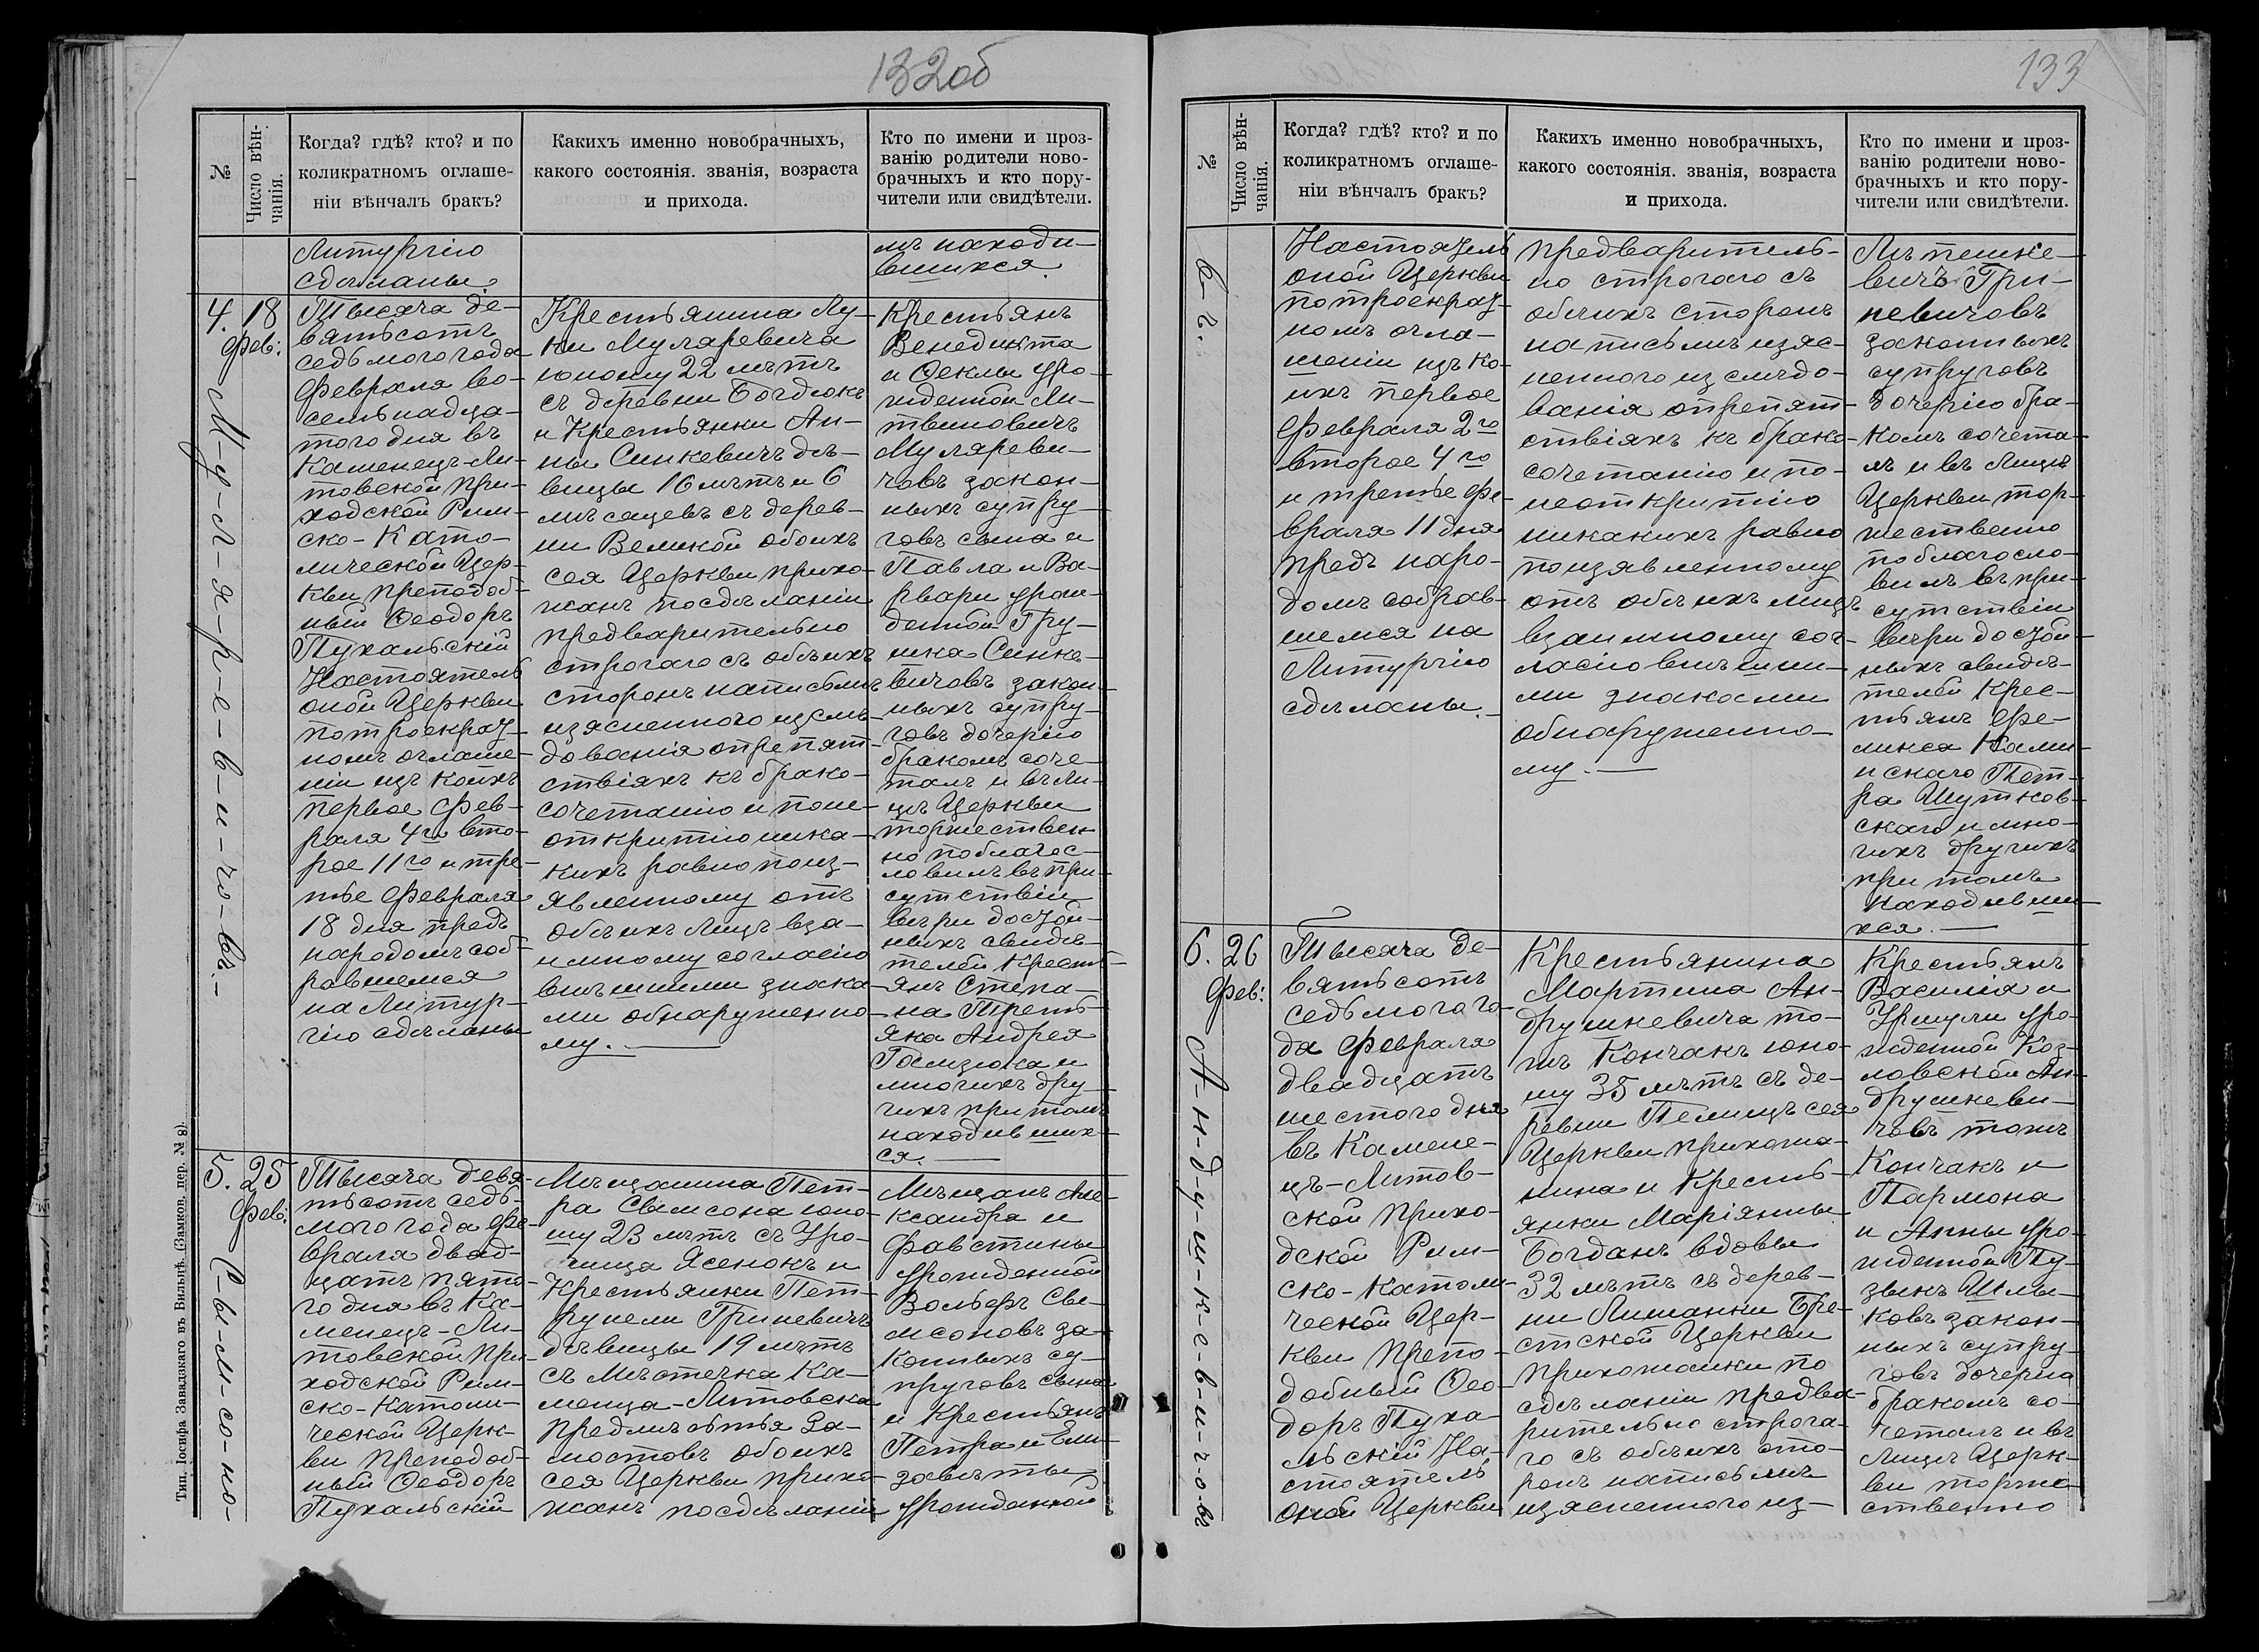 132об
№
Число вѣн-
чанія.
Когда? гдѣ? кто? и по
коликратномъ оглаше-
ніи вѣнчалъ бракъ?
Какихъ именно новобрачныхъ,
какого состоянія. званія, возраста
и прихода.
Кто по имени и проз-
ванію родители ново-
брачныхъ и кто пору-
чители или свидѣтели.
Литургію
сдѣланы.
мъ находи-
вшихся.
4. 18
Фев:
М-у-л-я-р-е-в-и-ч-о-въ.-
Тысяча де-
вятьсотъ
седьмого года
Февраля во-
семьнадца-
того дня въ
Каменецъ-Ли-
товской при-
ходской Рим-
ско-Като-
лической Цер-
кви преподоб-
ный Ѳеодоръ
Пухальскій
Настоятель
оной Церкви
по троекрат-
номъ оглаше-
ніи изъ коихъ
первое Фев-
раля 4го вто-
рое 11го и тре-
тье Февраля
18 дня предъ
народомъ соб-
равшемся
на Литур-
гію сдѣланы
Крестьянина Лу-
ки Муляревича
юношу 22 лѣтъ
съ деревни Богдюкъ
и Крестьянки Ан-
ны Синкевичъ дѣ-
вицы 16 лѣтъ и 6
мѣсяцевъ съ дерев-
ни Великой обоихъ
сея Церкви прихо-
жанъ посдѣланіи
предварительно
строгаго съ обѣихъ
сторонъ написьмѣ
изясненного изслѣ-
дованія опрепят-
ствіяхъ къ брако-
сочетанію и поне-
открытію ника-
кихъ равно поиз-
явленному отъ
обѣихъ лицъ вза-
имному согласію
внѣшними знака-
ми обнаруженно-
му.
Крестьянъ
Венедикта
и Ѳеклы уро-
жденной Ли-
твиновичъ
Муляреви-
човъ закон-
ныхъ супру-
говъ сына и
Павла и Ва-
рвары урож-
денной Гру-
шка Синке-
вичовъ закон-
ныхъ супру-
говъ дочерію
бракомъ соче-
талъ и въ ли-
цѣ Церкви
торжествен
но поблагос-
ловилъ въ при-
сутствіи
вѣри достой-
ныхъ свидѣ-
телей Кресть-
янъ Степа-
на Треть-
яка Андрея
многихъ дру-
гихъ притомъ
находивших-
ся.
5. 25
Фев:
С-ы-м-со-но-
Тысяча девя-
тьсотъ седь-
мого года Фе-
враля двад-
цать пято-
го дня въ Ка-
менецъ-Ли-
товской при-
ходской Рим-
ско-Католи-
ческой Церк-
ви преподоб-
ный Ѳеодоръ
Пухальскій
Мѣщанина Пет-
ра Сымсона юно-
шу 23 лѣтъ съ Уро-
чища Ясенокъ и
Крестьянки Пет-
рунели Гриневичъ
дѣвицы 19 лѣтъ
съ Мѣстечка Ка-
менца-Литовска
предмѣстья За-
мостовъ обоихъ
сея Церкви прихо-
жанъ посдѣланіи
Мѣщанъ Але-
ксандра и
Фавстины
урожденной
Вольферъ Сы-
мсоновъ за-
конныхъ су-
пруговъ сына
и Крестьянъ
Петра и Ели-
заветы
урожденной
Тип. Іосифа Завадзкаго въ Вильнѣ. (Замков. пер. № 8).
133
№
Число вѣн-
чанія.
Когда? гдѣ? кто? и по
коликратномъ оглаше-
ніи вѣнчалъ бракъ?
Какихъ именно новобрачныхъ,
какого состоянія. званія, возраста
и прихода.
Кто по имени и проз-
ванію родители ново-
брачныхъ и кто пору-
чители или свидѣтели.
Настоятель
оной Церкви
по троекрат-
номъ огла-
шеніи изъ ко-
ихъ первое
Февраля 2го
второе 4го
и третье Фе-
враля 11 дня
предъ наро-
домъ собрав-
шемся на
Литургію
сдѣланы.
предваритель-
но строгаго съ
обѣихъ сторонъ
написьмѣ изяс-
ненного изслѣдо-
ванія опрепят-
ствіяхъ къ брако-
сочетанію и по-
неоткрытію
никакихъ равно
поизявленному
отъ обѣихъ лицъ
взаимному сог-
ласію внѣшни-
ми знаками
обнаруженно-
му.
вичъ Гри-
невичовъ
законныхъ
супруговъ
дочерію бра-
комъ сочета-
лъ и въ лицѣ
Церкви тор-
жественно
поблагосло-
вилъ въ при-
сутствіи
вѣри достой-
ныхъ свидѣ-
телей Крес-
тьянъ Фе-
ликса Ками-
нскаго Пет-
ра Шутков-
скаго и мно-
гихъ другихъ
при томъ
находивши-
хся.
6. 26
Фев:
А-н-д-у-ш-к-е-в-и-ч-о-въ
Тысяча де-
вятьсотъ
седьмого го-
да Февраля
двадцать
шестого дня
въ Камене-
цъ-Литов-
ской прихо-
дской Рим-
ско-Католи-
ческой Цер-
кви препо-
добный Ѳео-
доръ Пуха-
льскій На-
стоятель
оной Церкви
Крестьянина
Мартина Ан-
друшкевича то-
жъ Кончакъ юно-
шу 35 лѣтъ съ де-
ревни Пелищъ сея
Церкви прихожа-
нина и Кресть-
янки Маріянны
Богданъ вдовы
32 лѣтъ съ дерев-
ни Лишанки Бре-
стской Церкви
прихожанки по
сдѣланіи предва-
рительно строга-
го съ обѣихъ сто-
ронъ написьмѣ
изясненного из-
Крестьянъ
Василія и
Уршули уро-
жденной Коз-
ловской Ан-
друшкеви-
човъ тожъ
Кончакъ и
Пармона
и Анны уро-
жденной Пу-
зыкъ Шлы-
ковъ закон-
ныхъ супру-
говъ дочерію
бракомъ со-
четалъ и въ
Лицѣ Церк-
ви торже-
ственно